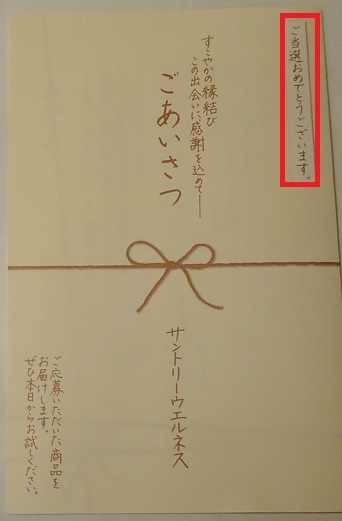 ご当選おめでとうございます。
すこやかの縁結び
この出会いに、感謝を込めて──
ごあいさつ
サントリーウエルネス
ご応募いただいた、商品を
お届けします。
ぜひ本日からお試しください。